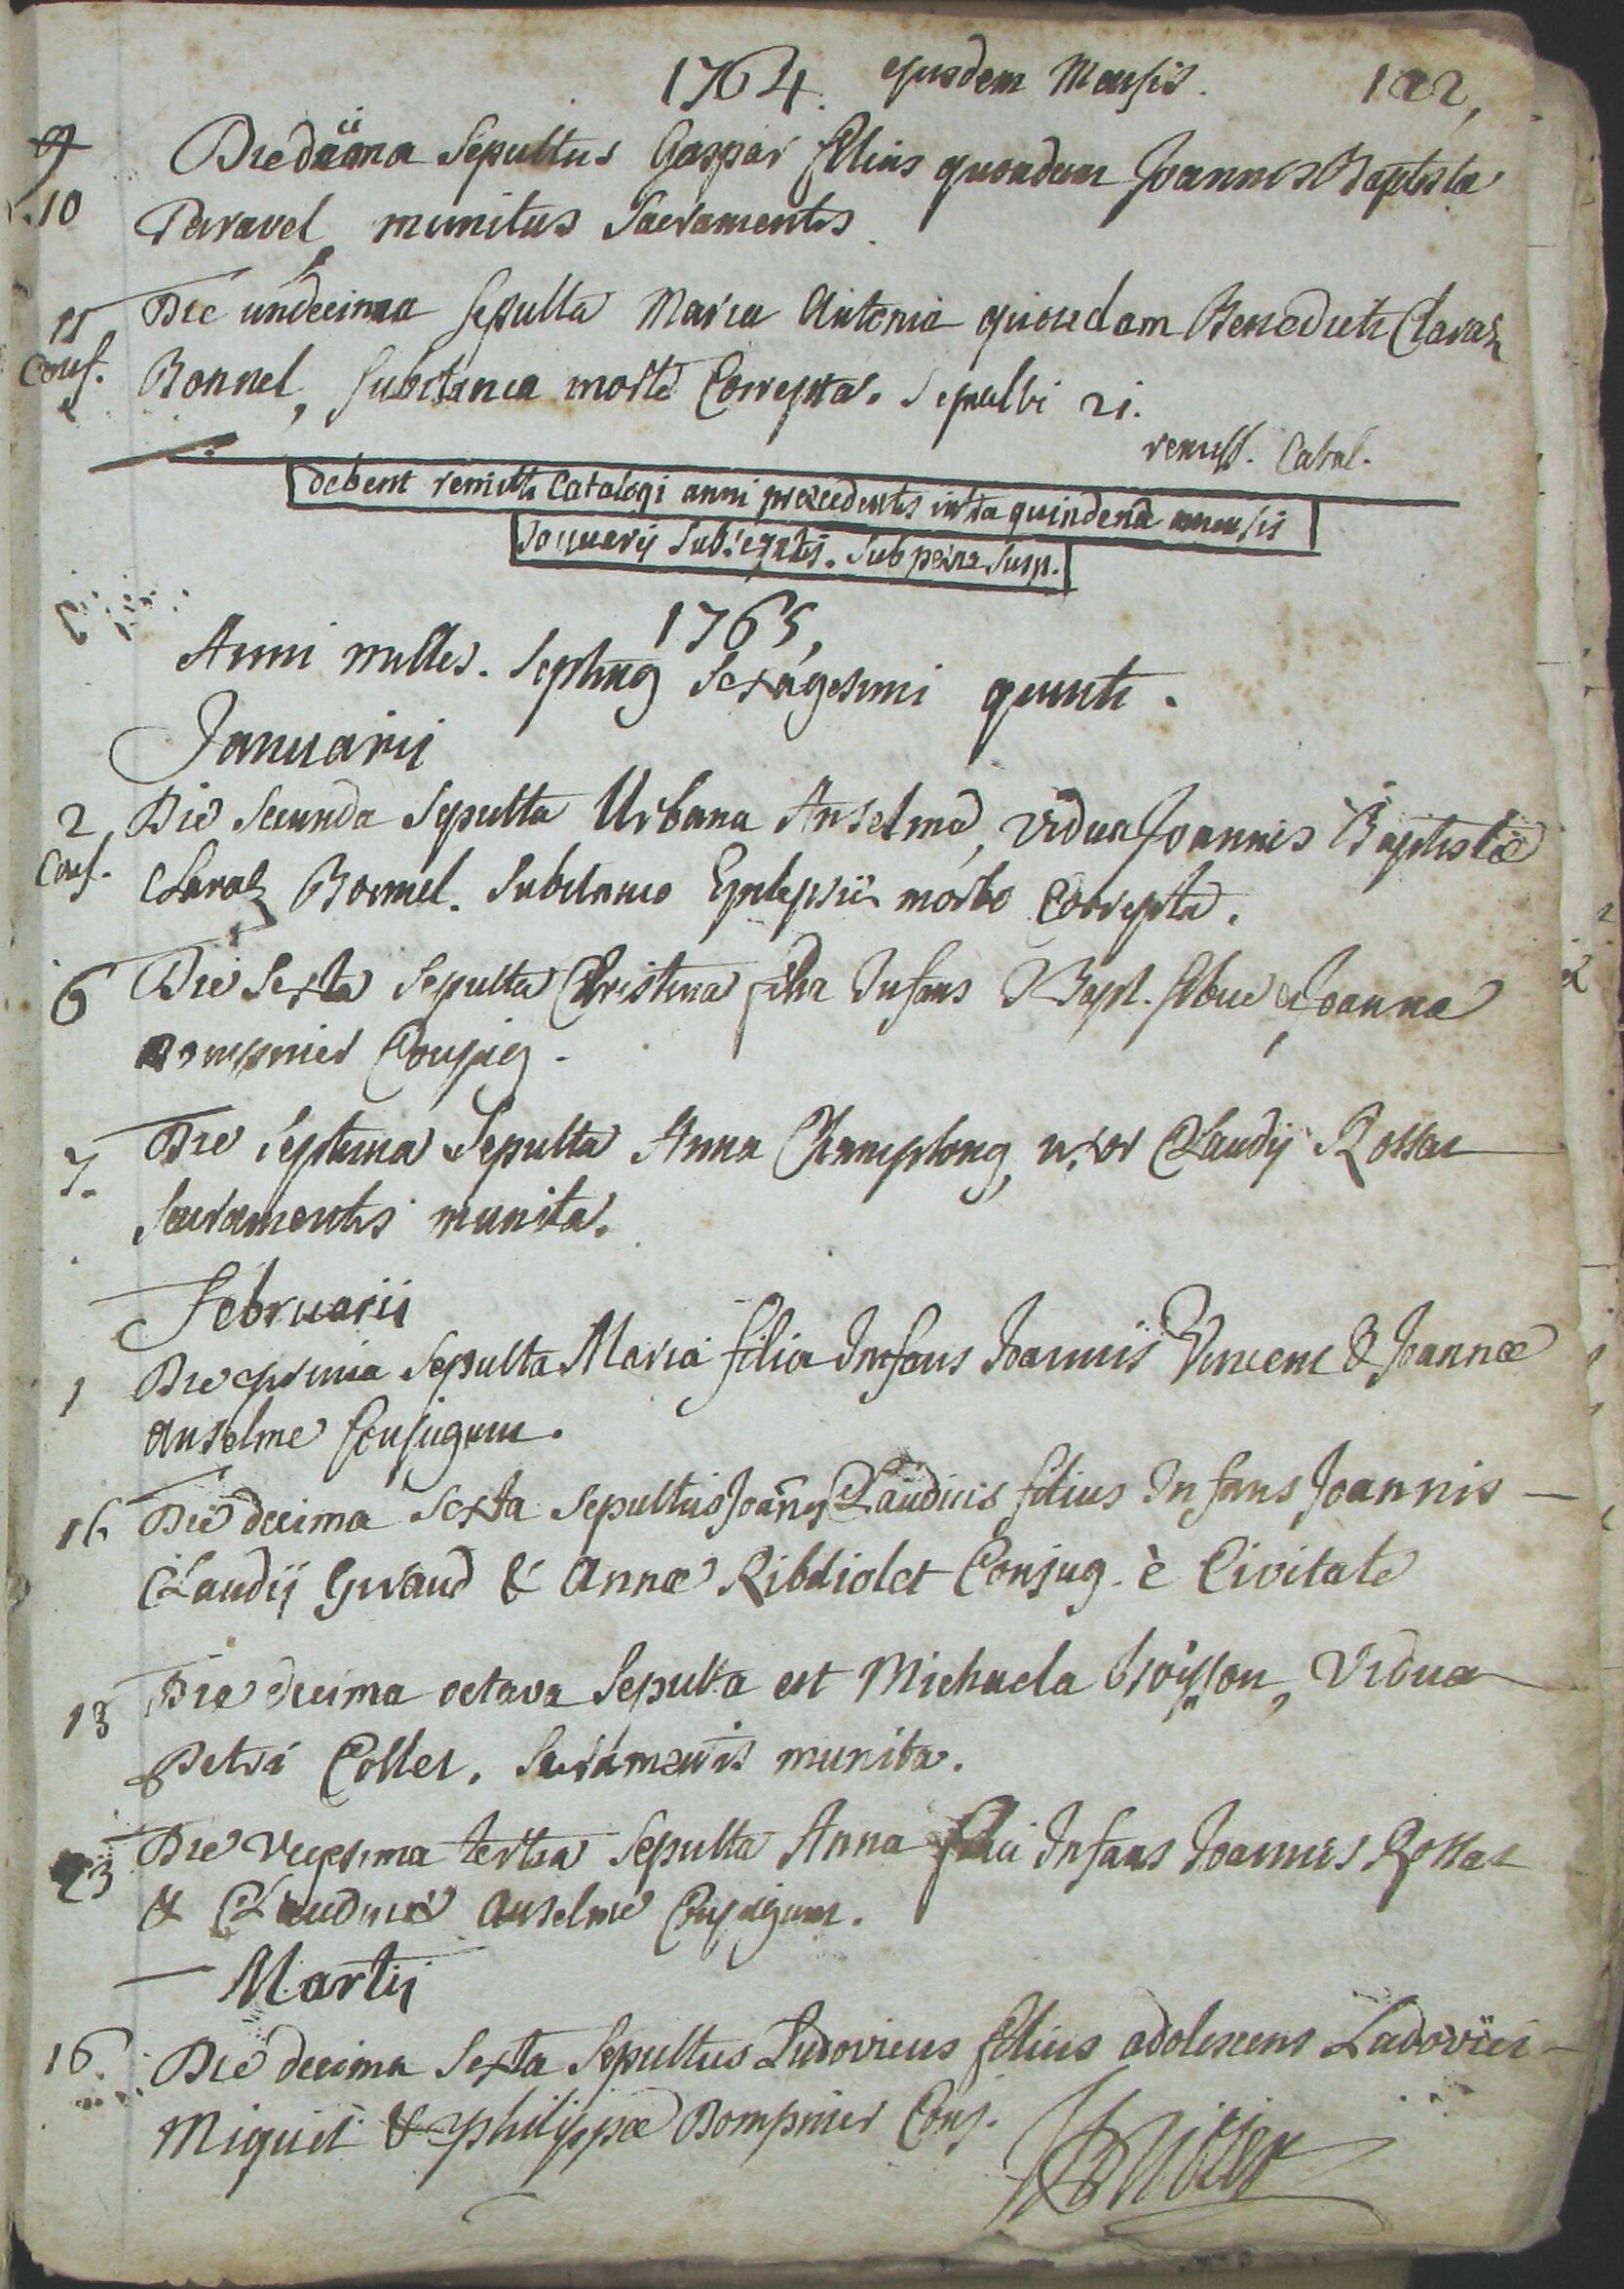 1764. ejusdem Mensis. 122,
9
10
Die däma Sepultus Gaspar filius quondam Joannis Baptista
Peravel, munitus Sacramentis.
11
Conf.
Die undecima sepulta Maria Antonia quondam Benedicti Claraz
Bonnel, subitanea morte Correpta. Sepulti 21.
remiss. Catal.
Debent remitti Catalogi anni præcedentis intra quindena mensis
Januarij Subseqntis. Sub pena Susp.
1765,
Anni milles. Septing Sexagesimi quinti.
Januarii
2,
Conf.
Die Secunda Sepulta Urbana Anselme, vidua Joannis Baptistæ
Claraz Bonnel. Subitaneo Epilepsiæ morbo Correpta.
6
Die Sexta Sepulta Christina filia Infans J Bapt. & Joannæ
Bompnier Conjug.
7.
Die Septima Sepulta Anna Champlong, uxor Claudij Rossat
Sacramentis munita.
Februarii
1
Die prima Sepulta Maria filia Infans Joannis Vincent & Joannæ
Anselme Conjugum.
16
Die decima Sexta Sepultus Joanes Claudius filius Infans Joannis
Claudij Giraud & Annæ Ribdiolet Conjug. è Civitate
18
Die decima octava Sepulta est Michaela Broisson, Vidua
Petri Collet. Sacramentis munita.
23
Die vigesima tertia Sepulta Anna filia Infans Joannis Rossat
& Claudinæ Anselme Conjugum.
Martij
16.
Die decima Sexta Sepultus Ludovicus filius adolescens Ludovici
Miquet & Philippæ Bompnier Conj.